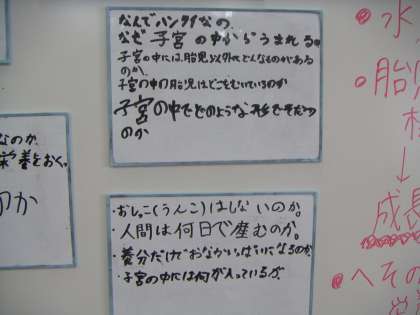 なぜ子宮の中からうまれる。
子宮の中には胎児以外にどんなものがある
のか。
子宮の中の胎児はどこをむいているのか
子宮の中でどのような形でそだつ
のか
・おしっこ(うんこ)はしないのか。
・人間は何日で産むのか。
・養分だけでおなかいっぱいになるのか。
・子宮の中には何が入っているか。
なのか
栄養をおく。
のか
・水
・胎児
↓
成長
・へその